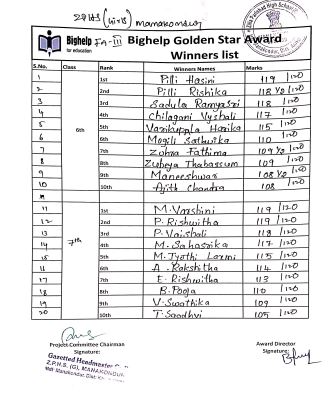 ZPHS (Girls) Manakondur
Bighelp
for education
FA-III
Bighelp Golden Star Award
Winners list
S.No. Class Rank Winners Names Marks
1 1st Pilli Hasini 119 /120
2 2nd Pilli Rishika 118 1/2 /120
3 3rd Sadula Ramyasri 118 /120
4 4th Chilagani Vyshali 117 /120
5 6th 5th Varikuppla Harika 115 /120
6 6th Mogili Sathwika 110 /120
7 7th Zoha Fathima 109 1/2 /120
8 8th Zubeya Thabassum 109 /120
9 9th Maneeshwar 108 1/2 /120
10 10th Ajith Chandra 108 /120
11 1st M. Varshini 119 /120
12 2nd P. Rishwitha 119 /120
13 3rd P. Vaishali 118 /120
14 7th 4th M. Sahasrika 117 /120
15 5th M. Jyothi Laxmi 115 /120
16 6th A. Rakshitha 114 /120
17 7th E. Rishwitha 113 /120
18 8th B. Pooja 110 /120
19 9th V. Swathika 109 /120
20 10th T. Saadhvi 105 /120
Project Committee Chairman
Signature:
Award Director
Signature:
Gazetted Headmaster
Z.P.H.S. (G), MANAKONDUR